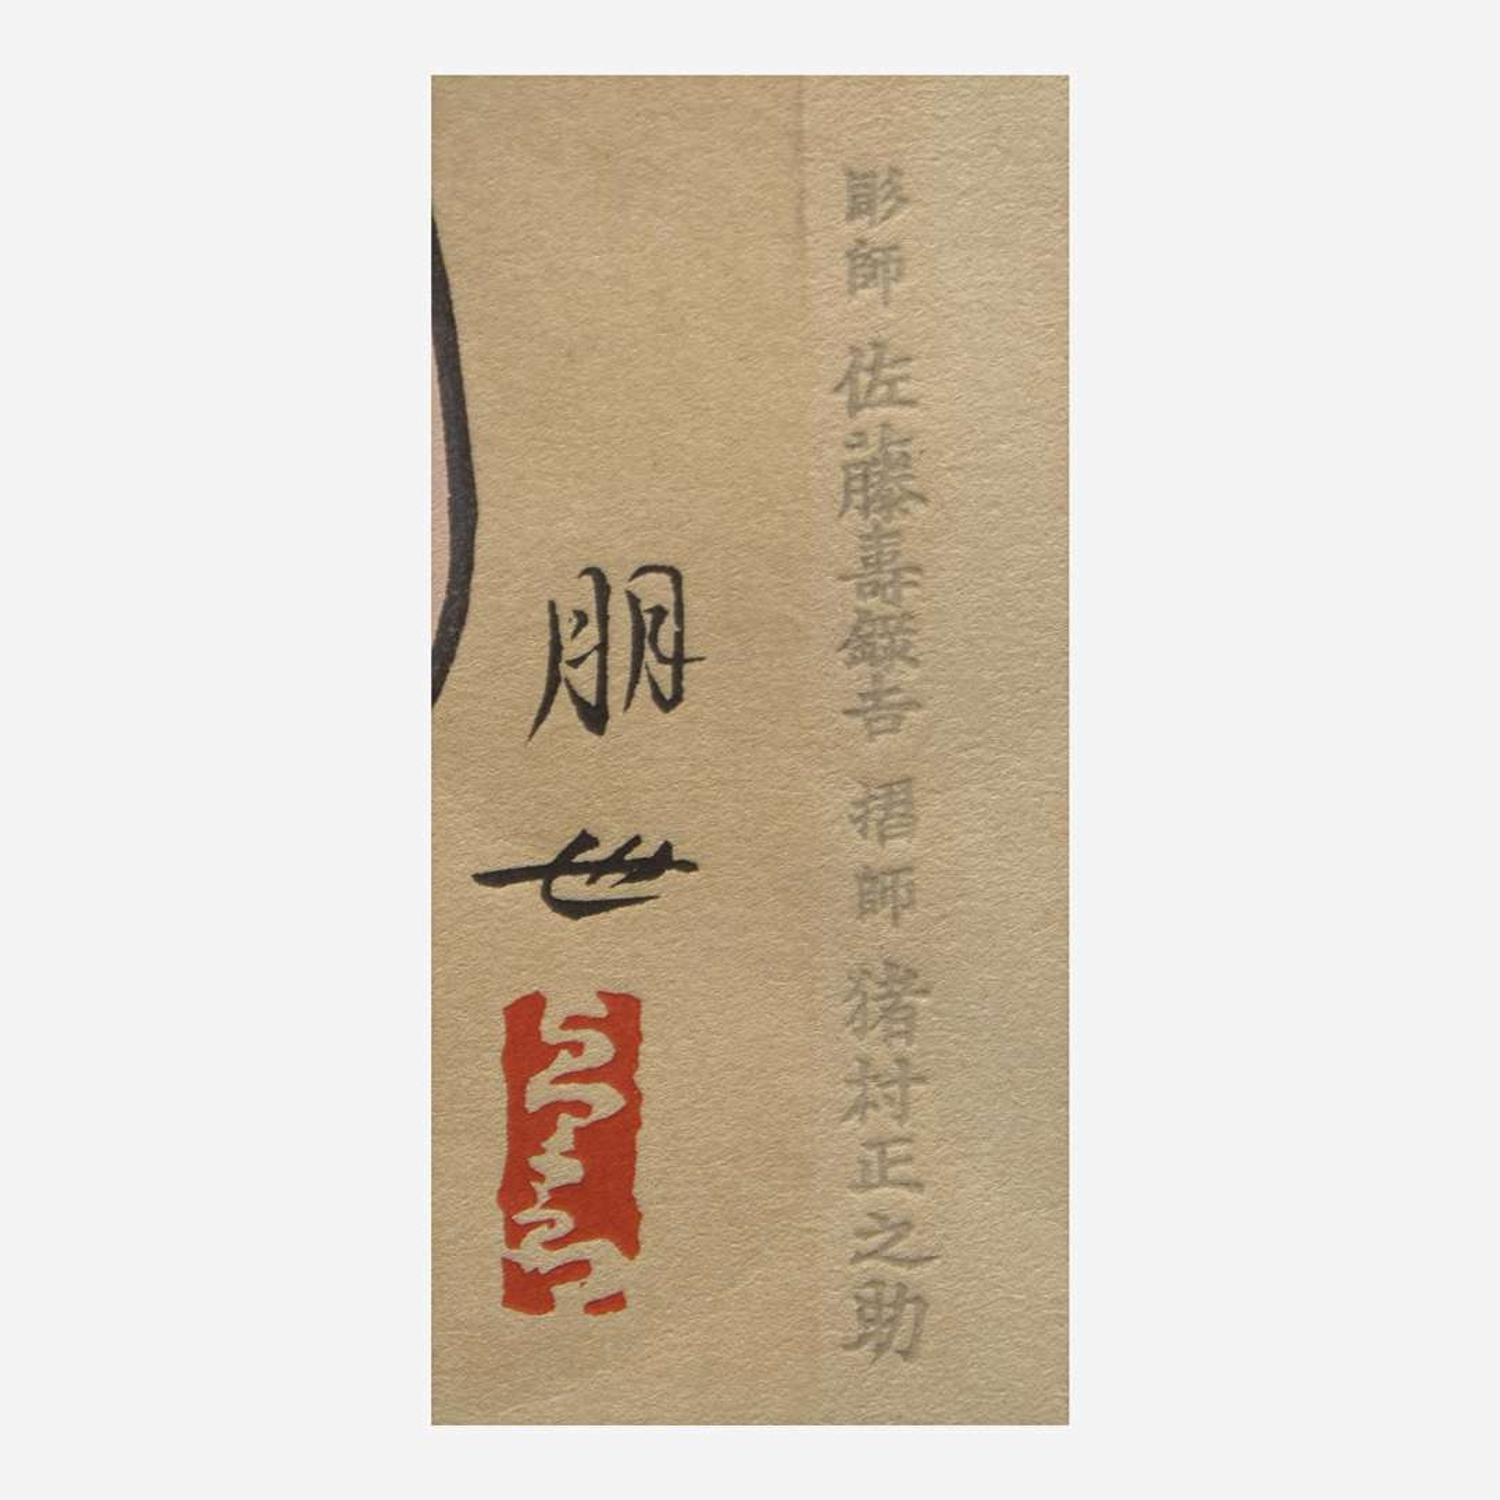 彫師 佐藤壽録吉 摺師 猪村正之助
朋世